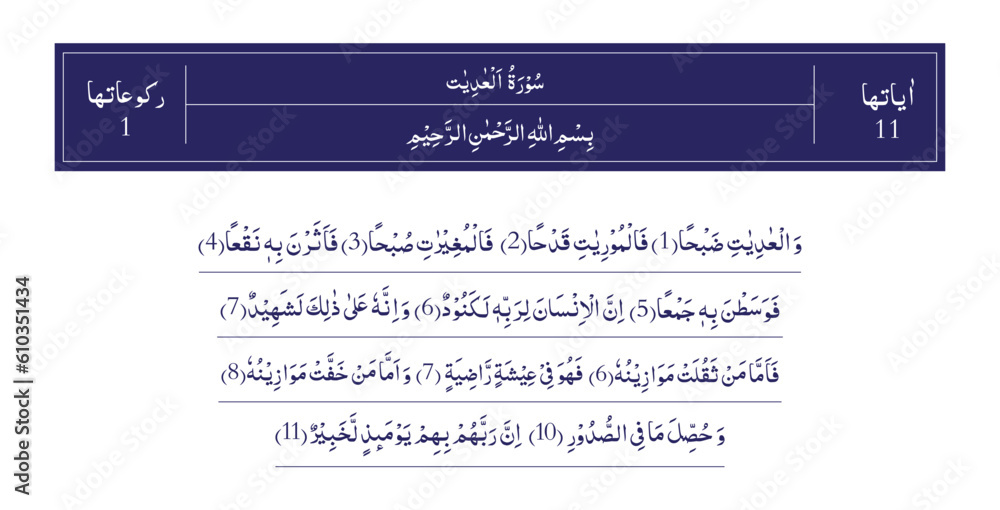 اٰیاتها
11
سُوْرَةُ اَلْعٰدِیٰت
بِسْمِ اللهِ الرَّحْمٰنِ الرَّحِیْمِ
ركوعاتها
1
وَالْعٰدِیٰتِ ضَبْحًا(1) فَالْمُوْرِیٰتِ قَدْحًا(2) فَالْمُغِیْرٰتِ صُبْحًا(3) فَاَثَرْنَ بِهٖ نَقْعًا(4)
فَوَسَطْنَ بِهٖ جَمْعًا(5) اِنَّ الْاِنْسَانَ لِرَبِّهٖ لَكَنُوْدٌ(6) وَاِنَّهٗ عَلٰى ذٰلِكَ لَشَهِیْدٌ(7)
فَاَمَّا مَنْ ثَقُلَتْ مَوَازِیْنُهٗ(6) فَهُوَ فِیْ عِیْشَةٍ رَّاضِیَةٍ (7) وَاَمَّا مَنْ خَفَّتْ مَوَازِیْنُهٗ(8)
وَحُصِّلَ مَا فِی الصُّدُوْرِ (10) اِنَّ رَبَّهُمْ بِهِمْ یَوْمَىِٕذٍ لَّخَبِیْرٌ(11)
Adobe Stock | #610351434